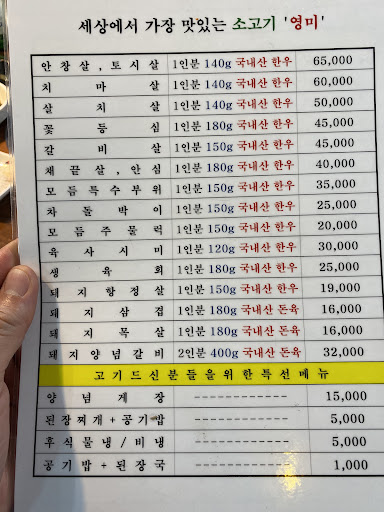 세상에서 가장 맛있는 소고기 '영미'
안창살,토시살 1인분 140g 국내산 한우 65,000
치마살 1인분 140g 국내산 한우 60,000
살치살 1인분 140g 국내산 한우 50,000
꽃등심 1인분 180g 국내산 한우 45,000
갈비살 1인분 150g 국내산 한우 45,000
채끝살,안심 1인분 180g 국내산 한우 40,000
모듬특수부위 1인분 150g 국내산 한우 35,000
차돌박이 1인분 150g 국내산 한우 25,000
모듬주물럭 1인분 150g 국내산 한우 20,000
육사시미 1인분 120g 국내산 한우 30,000
생육회 1인분 180g 국내산 한우 25,000
돼지항정살 1인분 150g 국내산 한우 19,000
돼지삼겹 1인분 180g 국내산 돈육 16,000
돼지목살 1인분 180g 국내산 돈육 16,000
돼지양념갈비 2인분 400g 국내산 돈육 32,000
고기드신분들을위한특선메뉴
양념게장 ------------- 15,000
된장찌개+공기밥 ------------- 5,000
후식물냉/비냉 ------------- 5,000
공기밥+된장국 ------------- 1,000